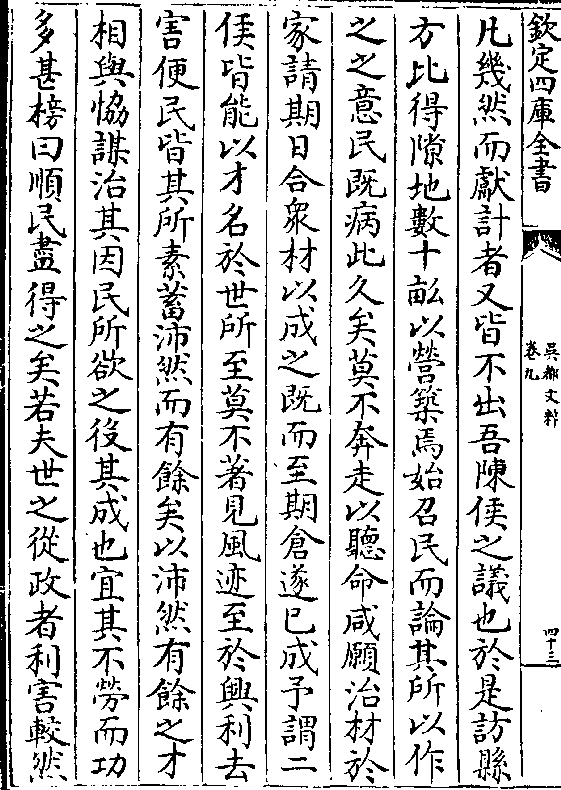 欽定四庫全書
吳都文粹
卷九
四十三
凡幾然而獻計者又皆不出吾陳侯之議也於是訪縣
方比得隙地數十畝以營築焉始召民而論其所以作
之之意民既病此久矣莫不奔走以聽命咸願治材於
家請期日合衆材以成之既而至期倉遂已成予謂二
侯皆能以才名於世所至莫不著見風迹至於興利去
害便民皆其所素蓄沛然而有餘矣以沛然有餘之才
相與恊謀治其因民所欲之役其成也宜其不勞而功
多甚榜曰順民盡得之矣若夫世之從政者利害較然